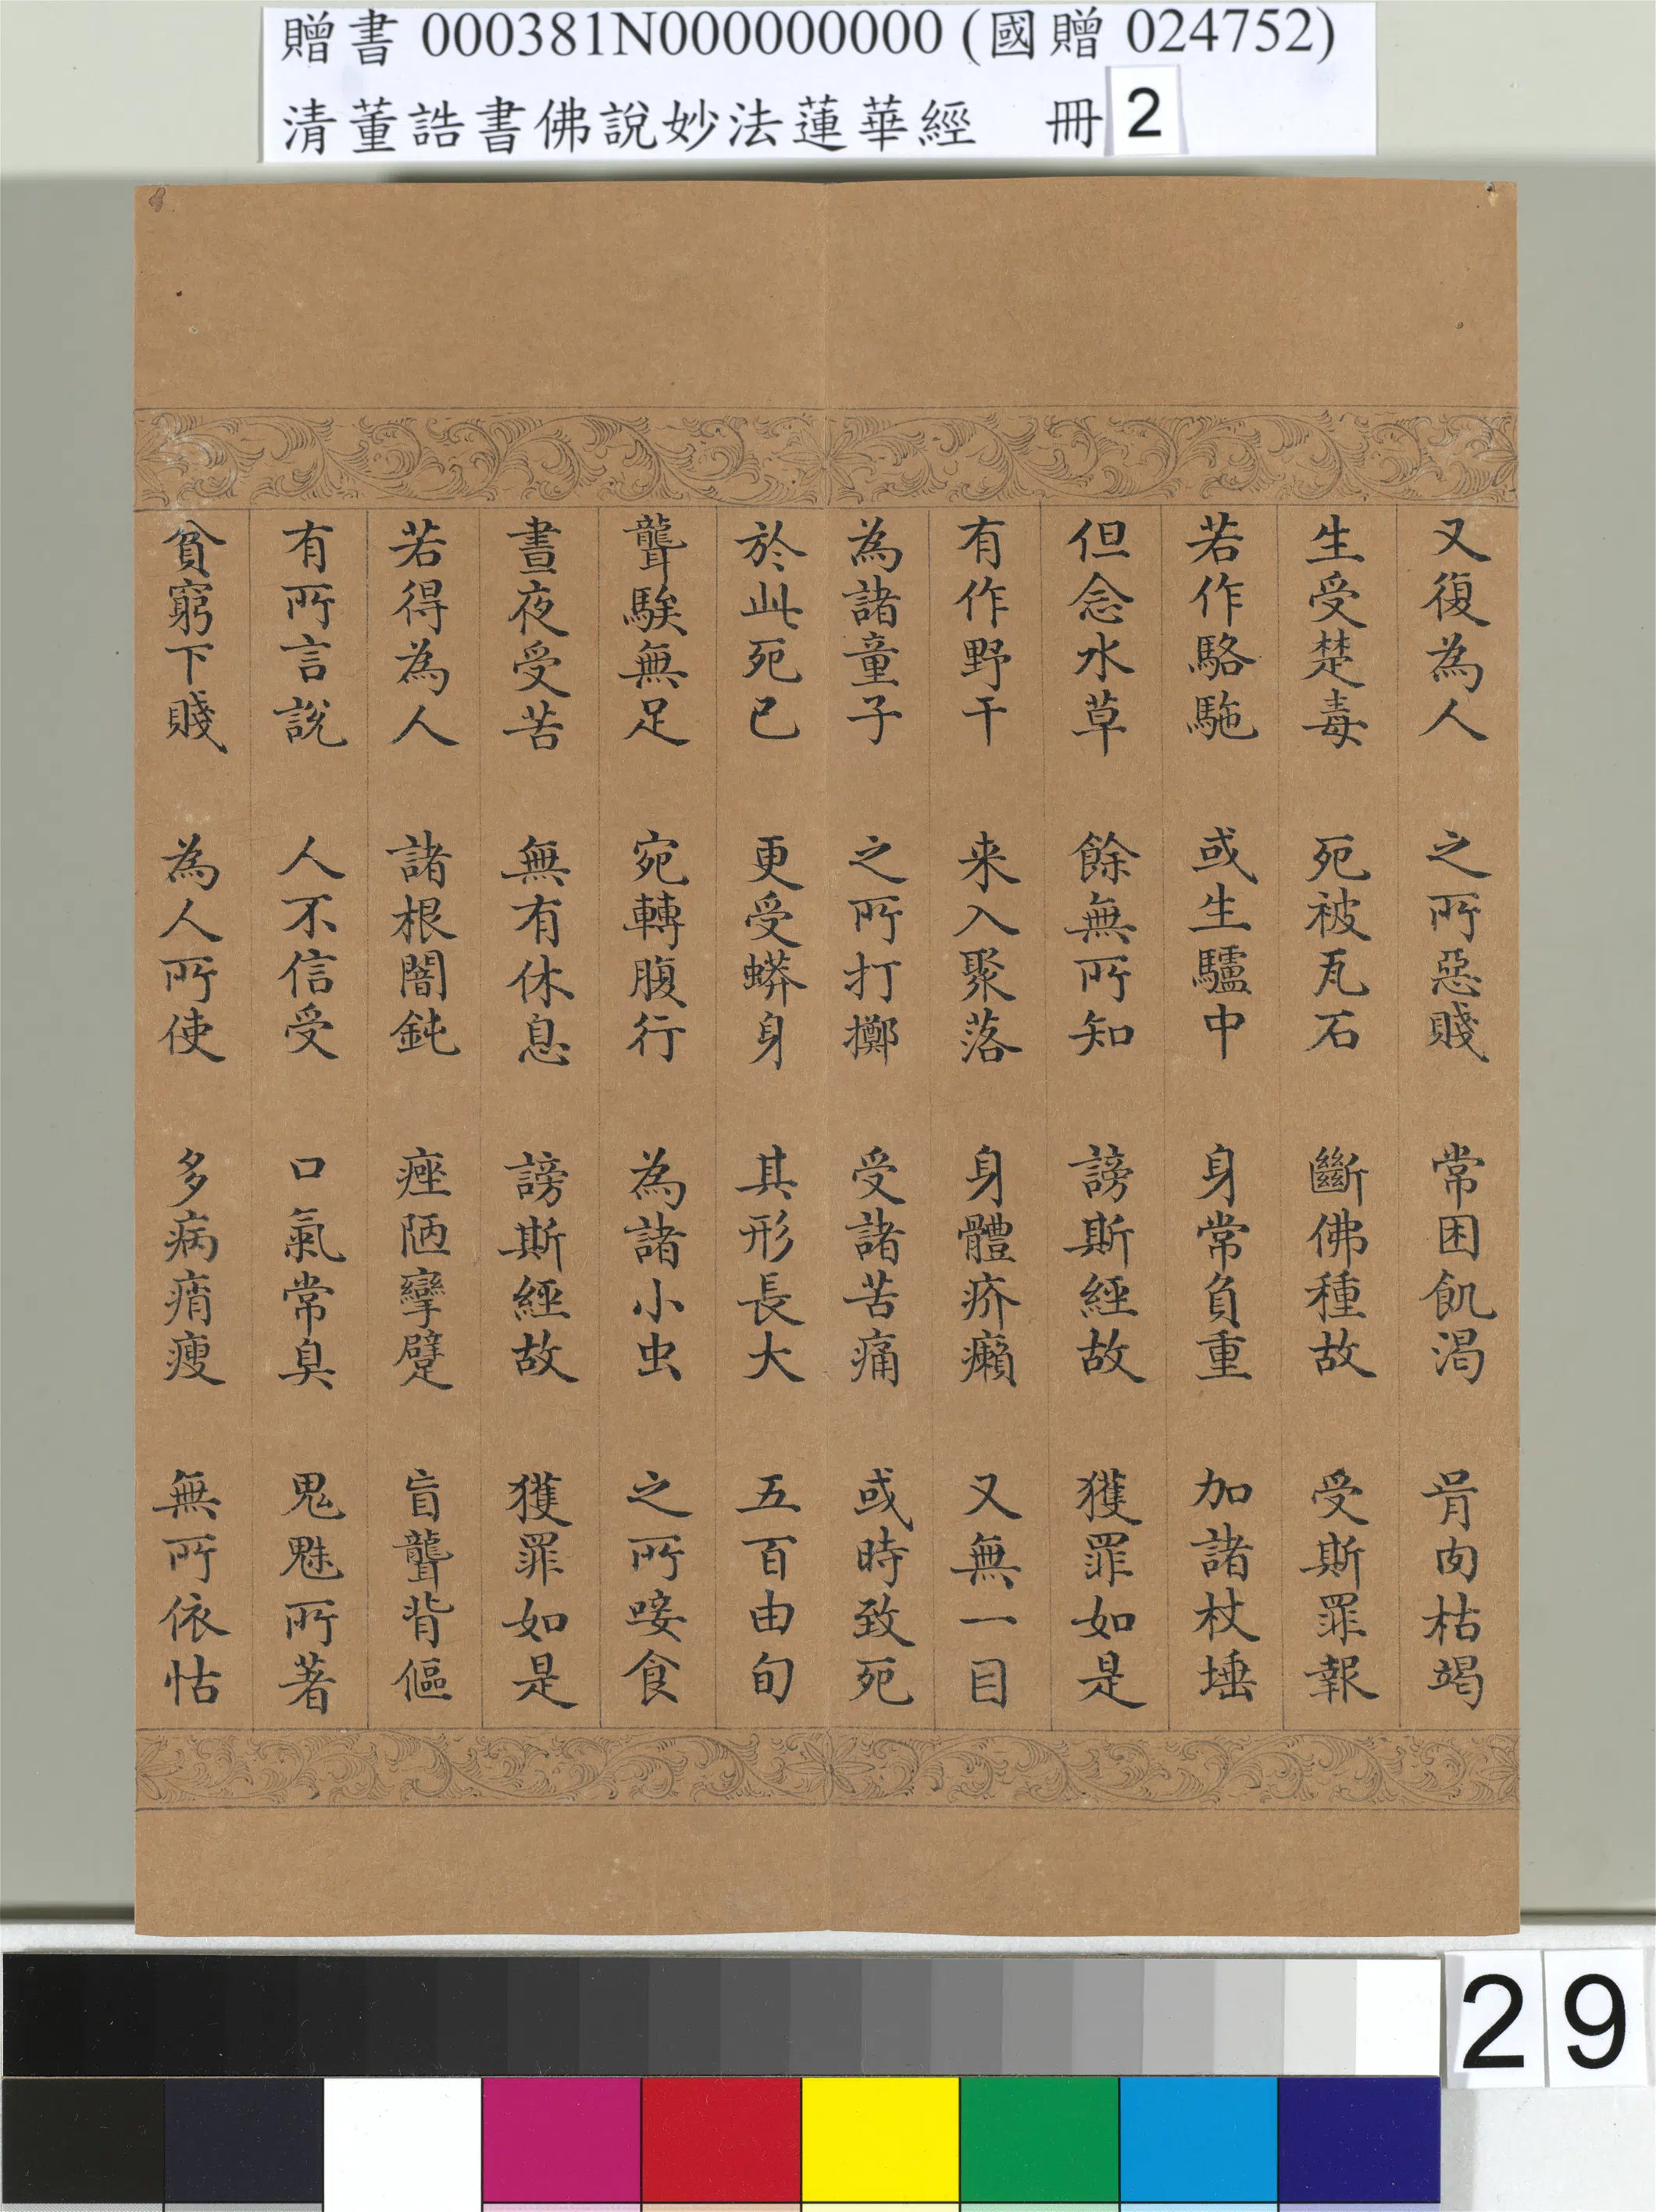 贈書 000381N000000000 (國贈 024752)
清董誥書佛說妙法蓮華經 冊 2
又復為人 之所惡賤 常困飢渴 骨肉枯竭
生受楚毒 死被瓦石 斷佛種故 受斯罪報
若作駱駞 或生驢中 身常負重 加諸杖捶
但念水草 餘無所知 謗斯經故 獲罪如是
有作野干 来入聚落 身體疥癩 又無一目
為諸童子 之所打擲 受諸苦痛 或時致死
於此死已 更受蟒身 其形長大 五百由旬
聾騃無足 宛轉腹行 為諸小虫 之所唼食
晝夜受苦 無有休息 謗斯經故 獲罪如是
若得為人 諸根闇鈍 痤陋攣躄 盲聾背傴
有所言說 人不信受 口氣常臭 鬼魅所著
貧窮下賤 為人所使 多病痟瘦 無所依怙
29